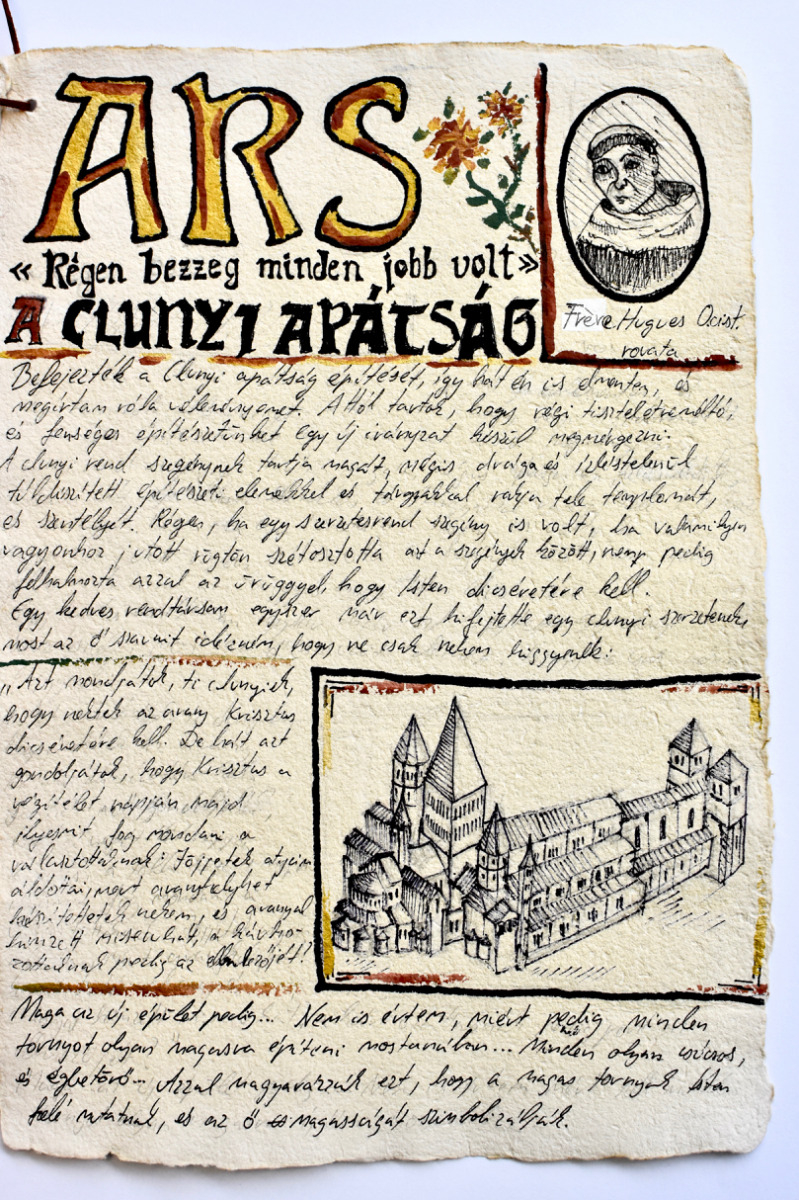 ARS
« Régen bezzeg minden jobb volt»
A CLUNYI APÁTSÁG
Frère Hugues Ocist.
rovata
Befejezték a Clunyi apátság építését, így hát én is elmentem, és
megírtam róla véleményemet. Attól tartok, hogy régi tiszteletreméltó,
és fenséges építészetünket egy új irányzat készül megmérgezni.
A clunyi rend szegénynek tartja magát, mégis drága és ízléstelenül
túldíszített építészeti elemekkel és tárgyakkal rakja tele templomát,
és szentélyét. Régen, ha egy szerzetesrend szegény is volt, ha valamilyen
vagyonhoz jutott rögtön szétosztotta azt a szegények között, nem pedig
felhalmozta azzal az ürüggyel, hogy Isten dicséretére kell.
Egy kedves rendtársam egyszer már ezt kifejtette egy clunyi szerzetesnek,
most az ő szavait idézném, hogy ne csak nekem higgyenek:
„Azt mondjátok, ti clunyiek,
hogy nektek az arany Krisztus
dicséretére kell. De hát azt
gondoljátok, hogy Krisztus a
végítélet napján majd
ilyesmit fog mondani a
választottainak: Jöjjetek atyám
áldottai, mert aranykelyhet
készítettetek nekem, és arannyal
hímzett miseruhát, a kárho-
zottaknak pedig az ellenkezőjét!
Maga az új épület pedig... Nem is értem, miért pedig minden
tornyot olyan magasra építeni mostanában... Minden olyan csúcsos,
és égbetörő... Azzal magyarázzák ezt, hogy a magas tornyok Isten
felé mutatnak, és az ő magasságát szimbolizálják.